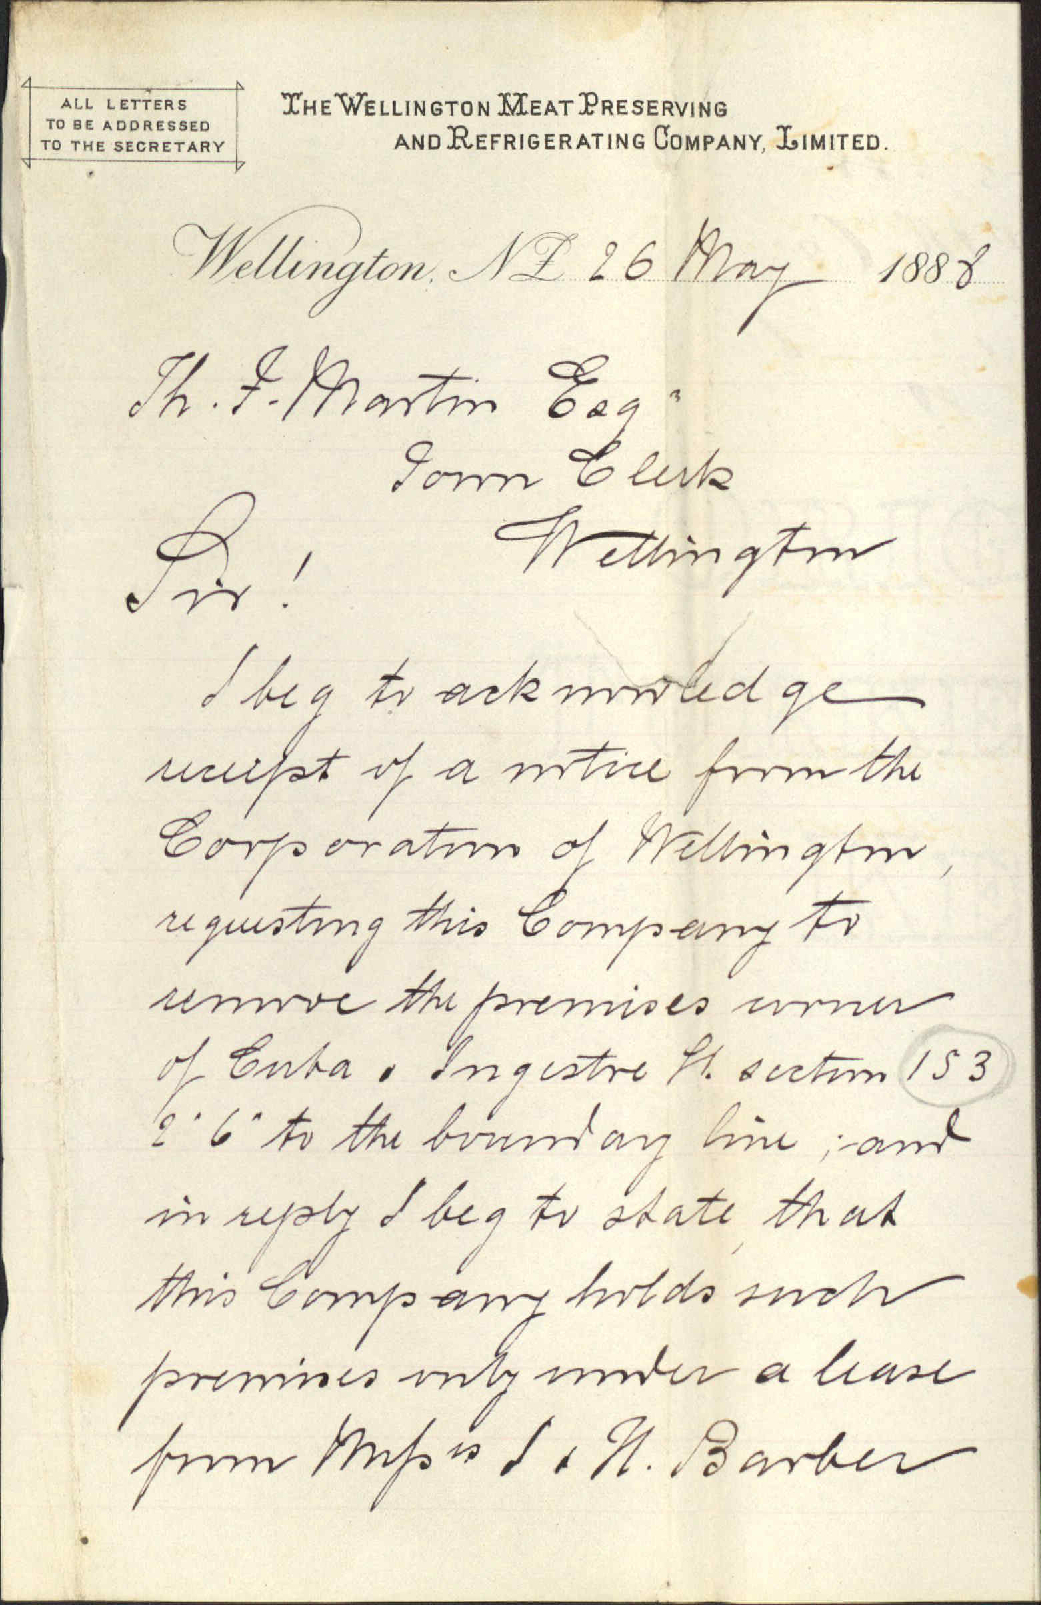 ALL LETTERS
TO BE ADDRESSED
TO THE SECRETARY
THE WELLINGTON MEAT PRESERVING
AND REFRIGERATING COMPANY, LIMITED.
Wellington, N Z 26 May 1888
Th. F. Martin Esq"
Town Clerk
Wellington
Sir!
I beg to acknowledge
receipt of a notice from the
Corporation of Wellington,
requesting this Company to
remove the premises corner
of Cuba & Ingestre St. section 153
2' 6" to the boundary line; and
in reply I beg to state, that
this Company holds such
premises only under a lease
from Messrs J & H. Barber